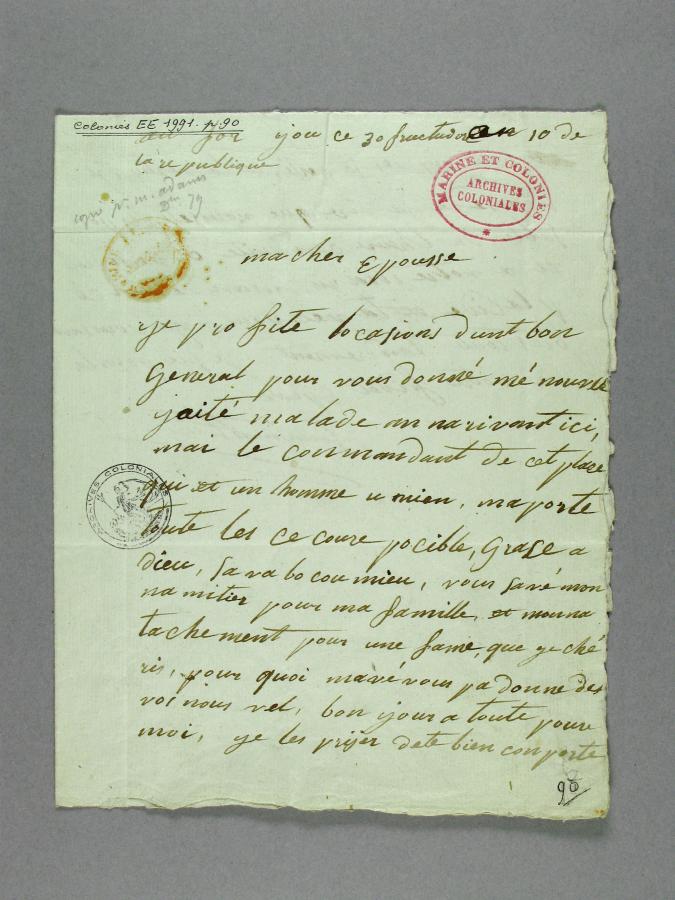 Colonies EE 1991. p. 90
au for you ce 30 fructidor an 10 de
la republique
MARINE ET COLONIES
ARCHIVES
COLONIALES
ma cher Epousse
ye pro fite locasions dunt bon
General pour vous donné mé nouvel
jaité malade an narivant ici,
mai le commandant de cet place
qui et un homme u mien, ma porte
toute les ce coure pocible, Grase a
dieu, sa va bocou mieu, vous savé mon
na mitier pour ma famille, et mon na
tachement pour une fame, que ye ché
ris, pour quoi mavé vous pa donne des
vos nous vel, bon your a toute poure
moi, ye les prijer dete bien conporte
ARCHIVES COLONIALES
90